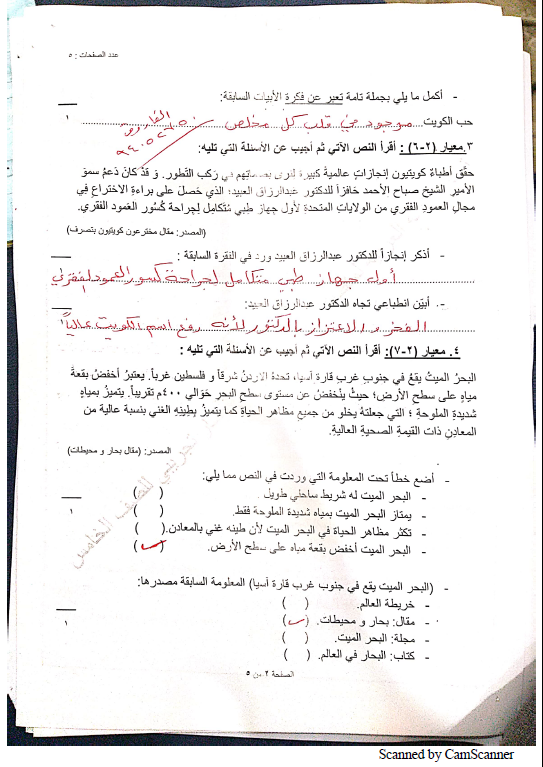 عدد الصفحات : ٥
- أكمل ما يلي بجملة تامة تعبر عن فكرة الأبيات السابقة:
حب الكويت موجود في قلب كل مخلص
١
٣. معيار (٢-٦) : أقرأ النص الآتي ثم أجيب عن الأسئلة التي تليه:
حقَّق أطباءٌ كويتيون إنجازاتٍ عالميةً كبيرة لنرى بصماتهم في ركب التَّطور. وَ قدْ كانَ دَعمُ سموّ
الأمير الشيخ صباح الأحمد حافزاً للدكتور عبدالرزاق العبيد؛ الذي حَصلَ على براءةِ الاختراع في
مجالِ العمودِ الفقري من الولاياتِ المتحدةِ لأول جهازٍ طبي مُتكاملٍ لجراحة كُسُور العَمود الفقري.
(المصدر: مقال مخترعون كويتيون بتصرف)
- أذكر إنجازاً للدكتور عبدالرزاق العبيد ورد في الفقرة السابقة :
أول جهاز طبي متكامل لجراحة كسور العمود الفقري
- أبيّن انطباعي تجاه الدكتور عبدالرزاق العبيد:
الفخر والاعتزاز بالدكتور لأنه رفع اسم الكويت عالياً
١
٤. معيار (٢-٧): أقرأ النص الآتي ثم أجيب عن الأسئلة التي تليه :
البحرُ الميتُ يقعُ في جنوبِ غربِ قارةِ آسيا، تحدهُ الاردنُ شرقاً و فلسطين غرباً. يعتبرُ أخفضُ بقعةَ
مياهٍ على سطحِ الأرضِ؛ حيثُ ينْخفضُ عن مستوى سطحِ البحر حَوَالي ٤٠٠م تقريباً. يتميزُ بمياهٍ
شديدةِ الملوحةِ ؛ التي جعلتهُ يخلو من جميعِ مظاهرِ الحياةِ كما يتميزُ بطينِه الغني بنسبة عالية من
المعادِنِ ذات القيمةِ الصحيةِ العالية.
(المصدر: مقال بحار و محيطات)
- أضع خطاً تحت المعلومة التي وردت في النص مما يلي:
- البحر الميت له شريط ساحلي طويل. ( )
- يمتاز البحر الميت بمياه شديدة الملوحة فقط. ( )
١
- تكثر مظاهر الحياة في البحر الميت لأن طينه غني بالمعادن. ( )
- البحر الميت أخفض بقعة مياه على سطح الأرض. ( )
- (البحر الميت يقع في جنوب غرب قارة آسيا) المعلومة السابقة مصدرها:
- خريطة العالم. ( )
- مقال: بحار و محيطات. ( )
١
- مجلة: البحر الميت. ( )
- كتاب: البحار في العالم. ( )
الصفحة ٢ من ٥
Scanned by CamScanner